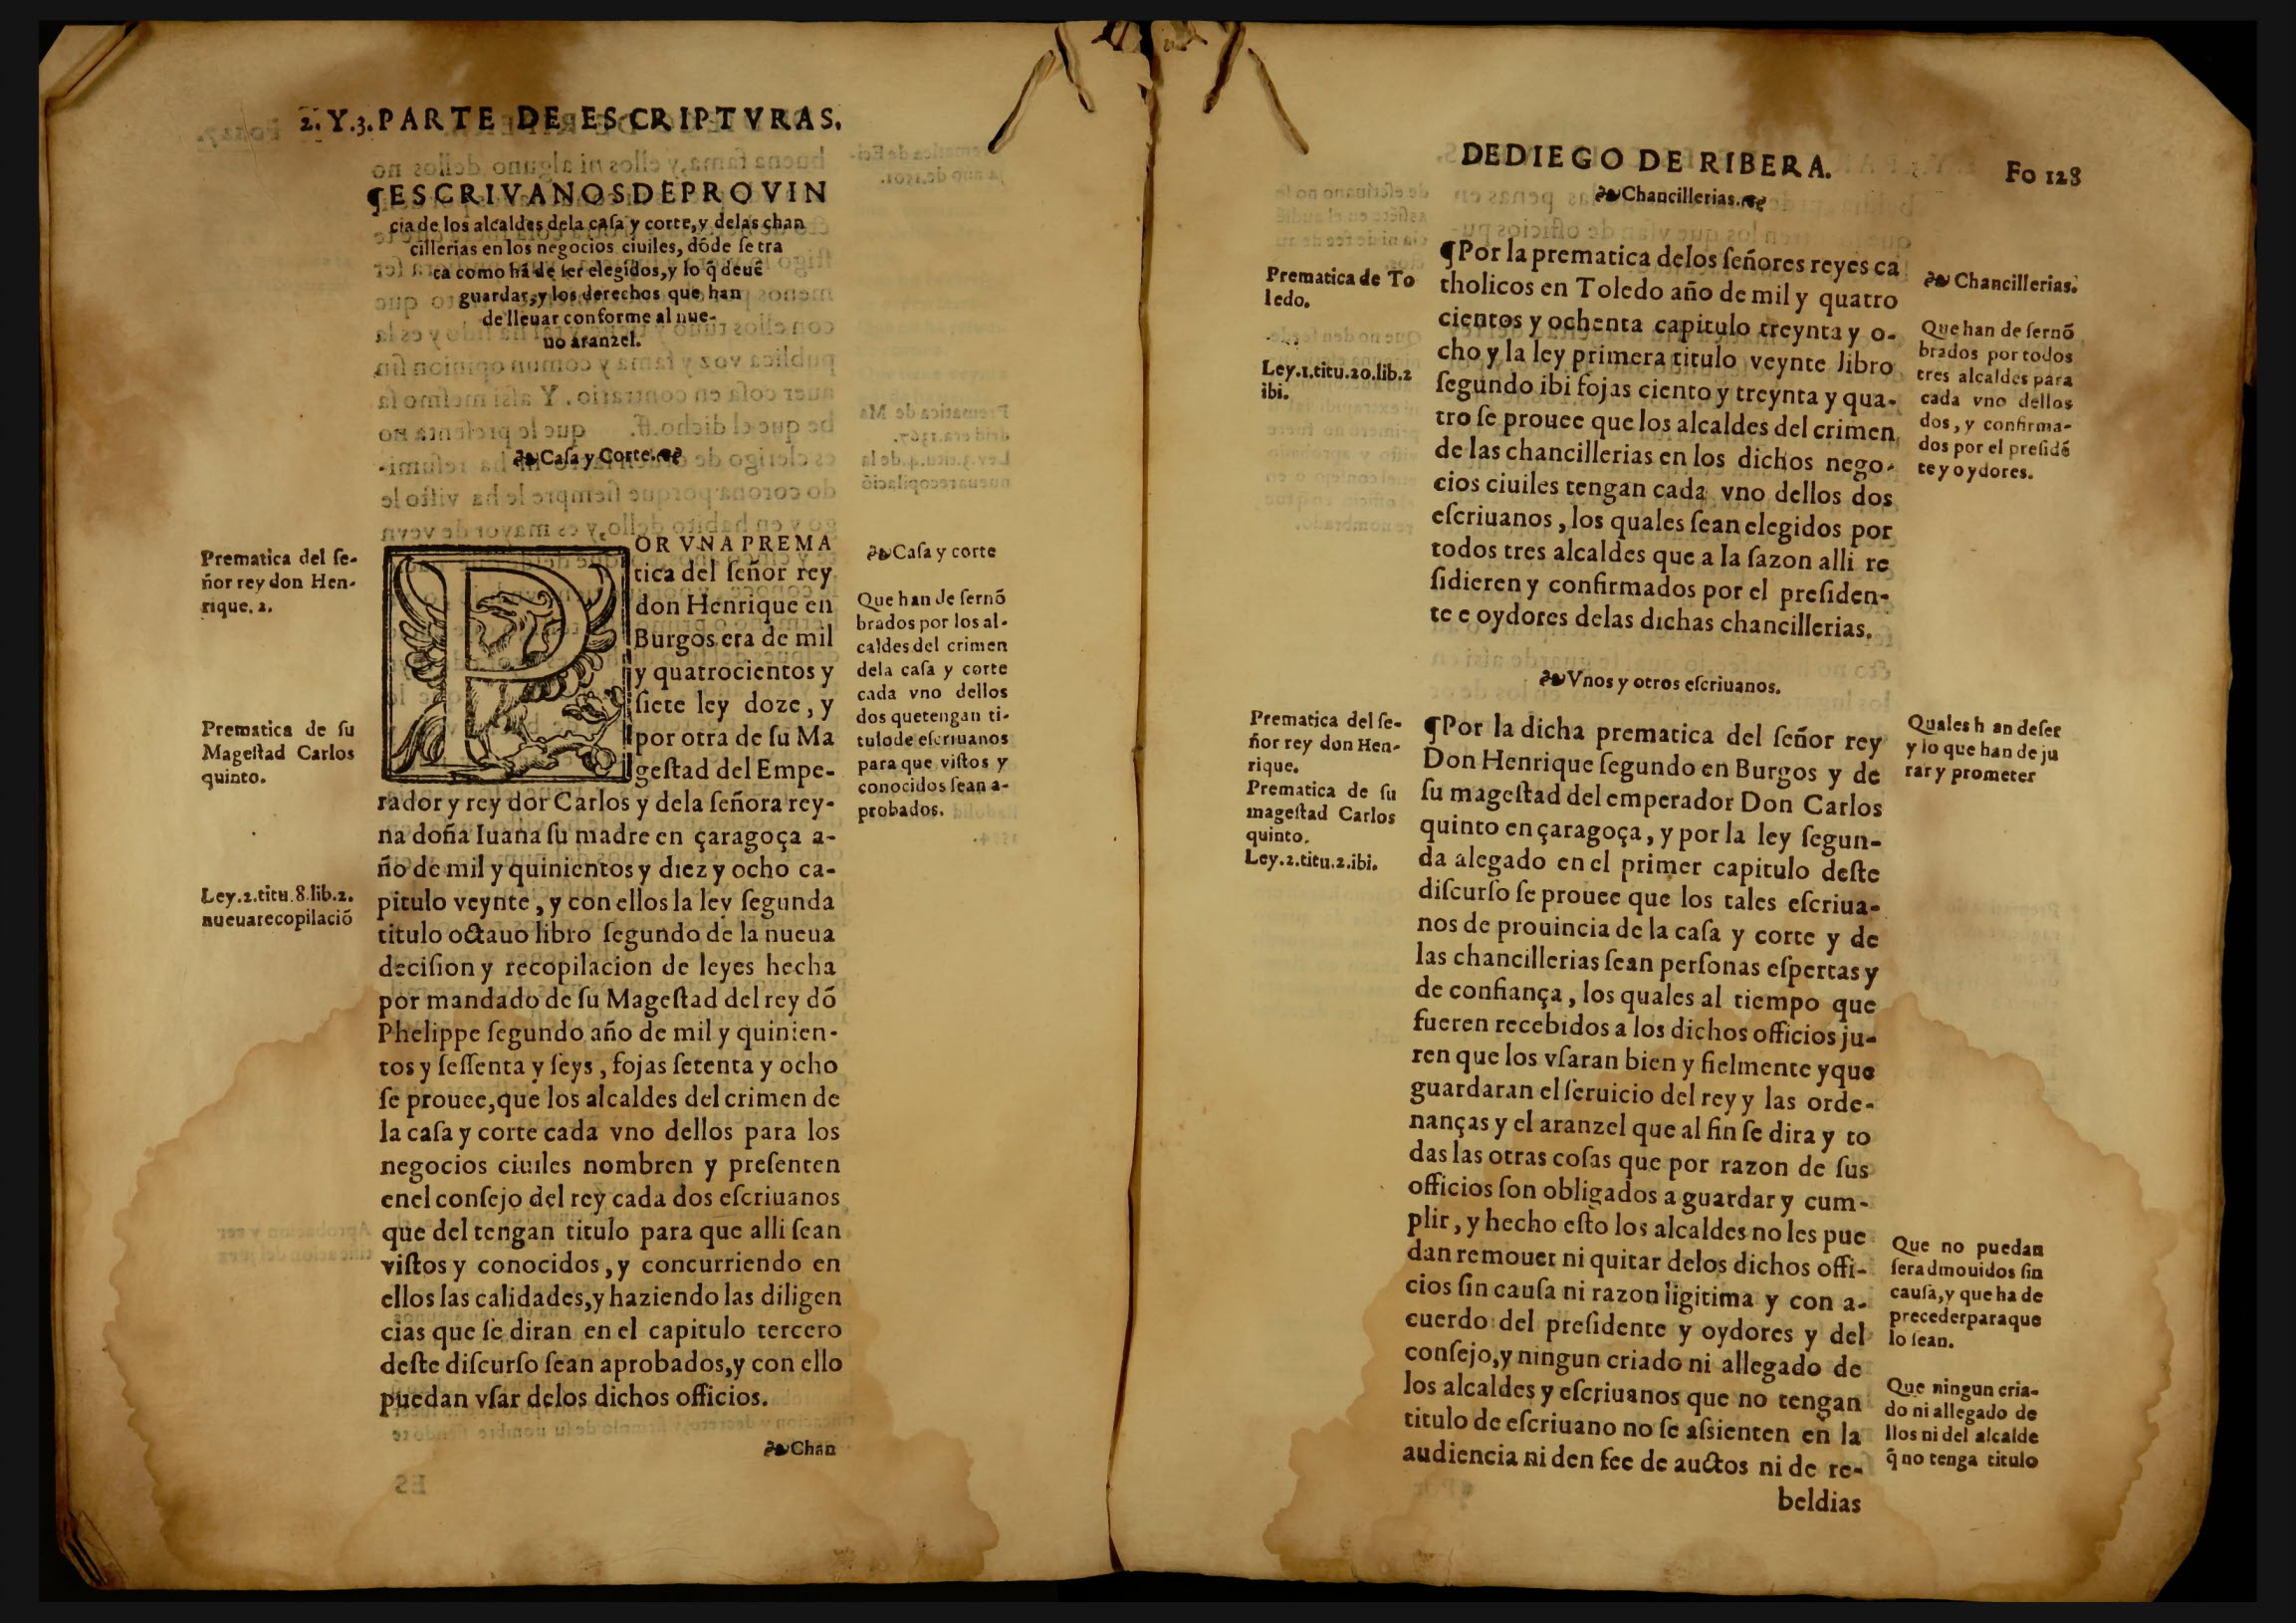 2.Y.3.PARTE DE ESCRIPTVRAS.
¶ESCRIVANOS DE PROVIN
cia de los alcaldes dela caſa y corte, y delas chan
cillerias en los negocios ciuiles, dõde ſe tra
ta como hã de ſer elegidos, y lo q̃ deuẽ
guardar, y los derechos que han
de lleuar conforme al nue-
uo aranzel.
Caſa y Corte.
Prematica del ſe-
ñor rey don Hen-
rique. 2.
Prematica de ſu
Mageſtad Carlos
quinto.
Ley.2.titu.8.lib.2.
nueuarecopilació
POR VNA PREMA
tica del ſeñor rey
don Henrique en
Burgos era de mil
y quatrocientos y
ſiete ley doze, y
por otra de ſu Ma
geſtad del Empe-
rador y rey dor Carlos y dela ſeñora rey-
na doña Iuana ſu madre en çaragoça a-
ño de mil y quinientos y diez y ocho ca-
pitulo veynte, y con ellos la ley ſegunda
titulo octauo libro ſegundo de la nueua
deciſion y recopilacion de leyes hecha
por mandado de ſu Mageſtad del rey dõ
Phelippe ſegundo año de mil y quinien-
tos y ſeſſenta y ſeys, fojas ſetenta y ocho
ſe prouee, que los alcaldes del crimen de
la caſa y corte cada vno dellos para los
negocios ciuiles nombren y preſenten
enel conſejo del rey cada dos eſcriuanos
que del tengan titulo para que alli ſean
viſtos y conocidos, y concurriendo en
ellos las calidades, y haziendo las diligen
cias que ſe diran en el capitulo tercero
deſte diſcurſo ſean aprobados, y con ello
puedan vſar delos dichos officios.
Chan
Caſa y corte
Que han de ſer nõ
brados por los al-
caldes del crimen
dela caſa y corte
cada vno dellos
dos que tengan ti-
tulo de eſcriuanos
para que viſtos y
conocidos ſean a-
probados.
DE DIEGO DE RIBERA.
Fo 128
Chancillerias.
Prematica de To
ledo.
Ley.1.titu.20.lib.2
ibi.
¶Por la prematica delos ſeñores reyes ca
tholicos en Toledo año de mil y quatro
cientos y ochenta capitulo treynta y o-
cho y la ley primera titulo veynte libro
ſegundo ibi fojas ciento y treynta y qua-
tro ſe prouee que los alcaldes del crimen
de las chancillerias en los dichos nego-
cios ciuiles tengan cada vno dellos dos
eſcriuanos, los quales ſean elegidos por
todos tres alcaldes que a la ſazon alli re
ſidieren y confirmados por el preſiden-
te e oydores delas dichas chancillerias.
Chancillerias.
Que han de ſer nõ
brados por todos
tres alcaldes para
cada vno dellos
dos, y confirma-
dos por el preſidẽ
te y oydores.
Vnos y otros eſcriuanos.
Prematica del ſe-
ñor rey don Hen-
rique.
Prematica de ſu
mageſtad Carlos
quinto.
Ley.2.titu.2.ibi.
¶Por la dicha prematica del ſeñor rey
Don Henrique ſegundo en Burgos y de
ſu mageſtad del emperador Don Carlos
quinto en çaragoça, y por la ley ſegun-
da alegado en el primer capitulo deſte
diſcurſo ſe prouee que los tales eſcriua-
nos de prouincia de la caſa y corte y de
las chancillerias ſean perſonas eſpertas y
de confiança, los quales al tiempo que
fueren recebidos a los dichos officios ju-
ren que los vſaran bien y fielmente y que
guardaran el ſeruicio del rey y las orde-
nanças y el aranzel que al fin ſe dira y to
das las otras coſas que por razon de ſus
officios ſon obligados a guardar y cum-
plir, y hecho eſto los alcaldes no les pue
dan remouer ni quitar delos dichos offi-
cios ſin cauſa ni razon ligitima y con a-
cuerdo del preſidente y oydores y del
conſejo, y ningun criado ni allegado de
los alcaldes y eſcriuanos que no tengan
titulo de eſcriuano no ſe aſsienten en la
audiencia ni den fee de auctos ni de re-
beldias
Quales h an de ſer
y lo que han de ju
rar y prometer
Que no puedan
ſer admouidos ſin
cauſa, y que ha de
preceder para que
lo ſean.
Que ningun cria-
do ni allegado de
llos ni del alcalde
q̃ no tenga titulo